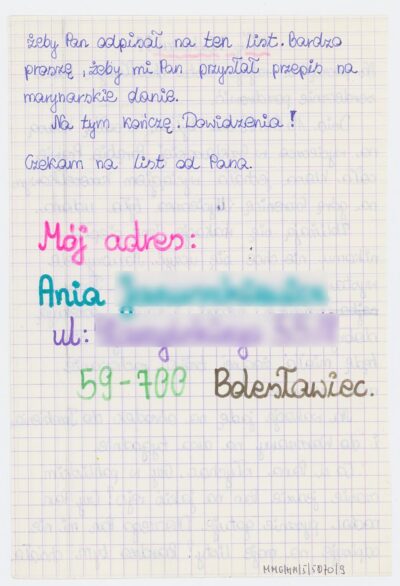 żeby Pan odpisał na ten list. Bardzo
proszę, żeby mi Pan przysłał przepis na
marynarskie danie.
Na tym kończę. Dowidzenia!
Czekam na list od Pana.
Mój adres:
Ania
ul:
59-700 Bolesławiec.